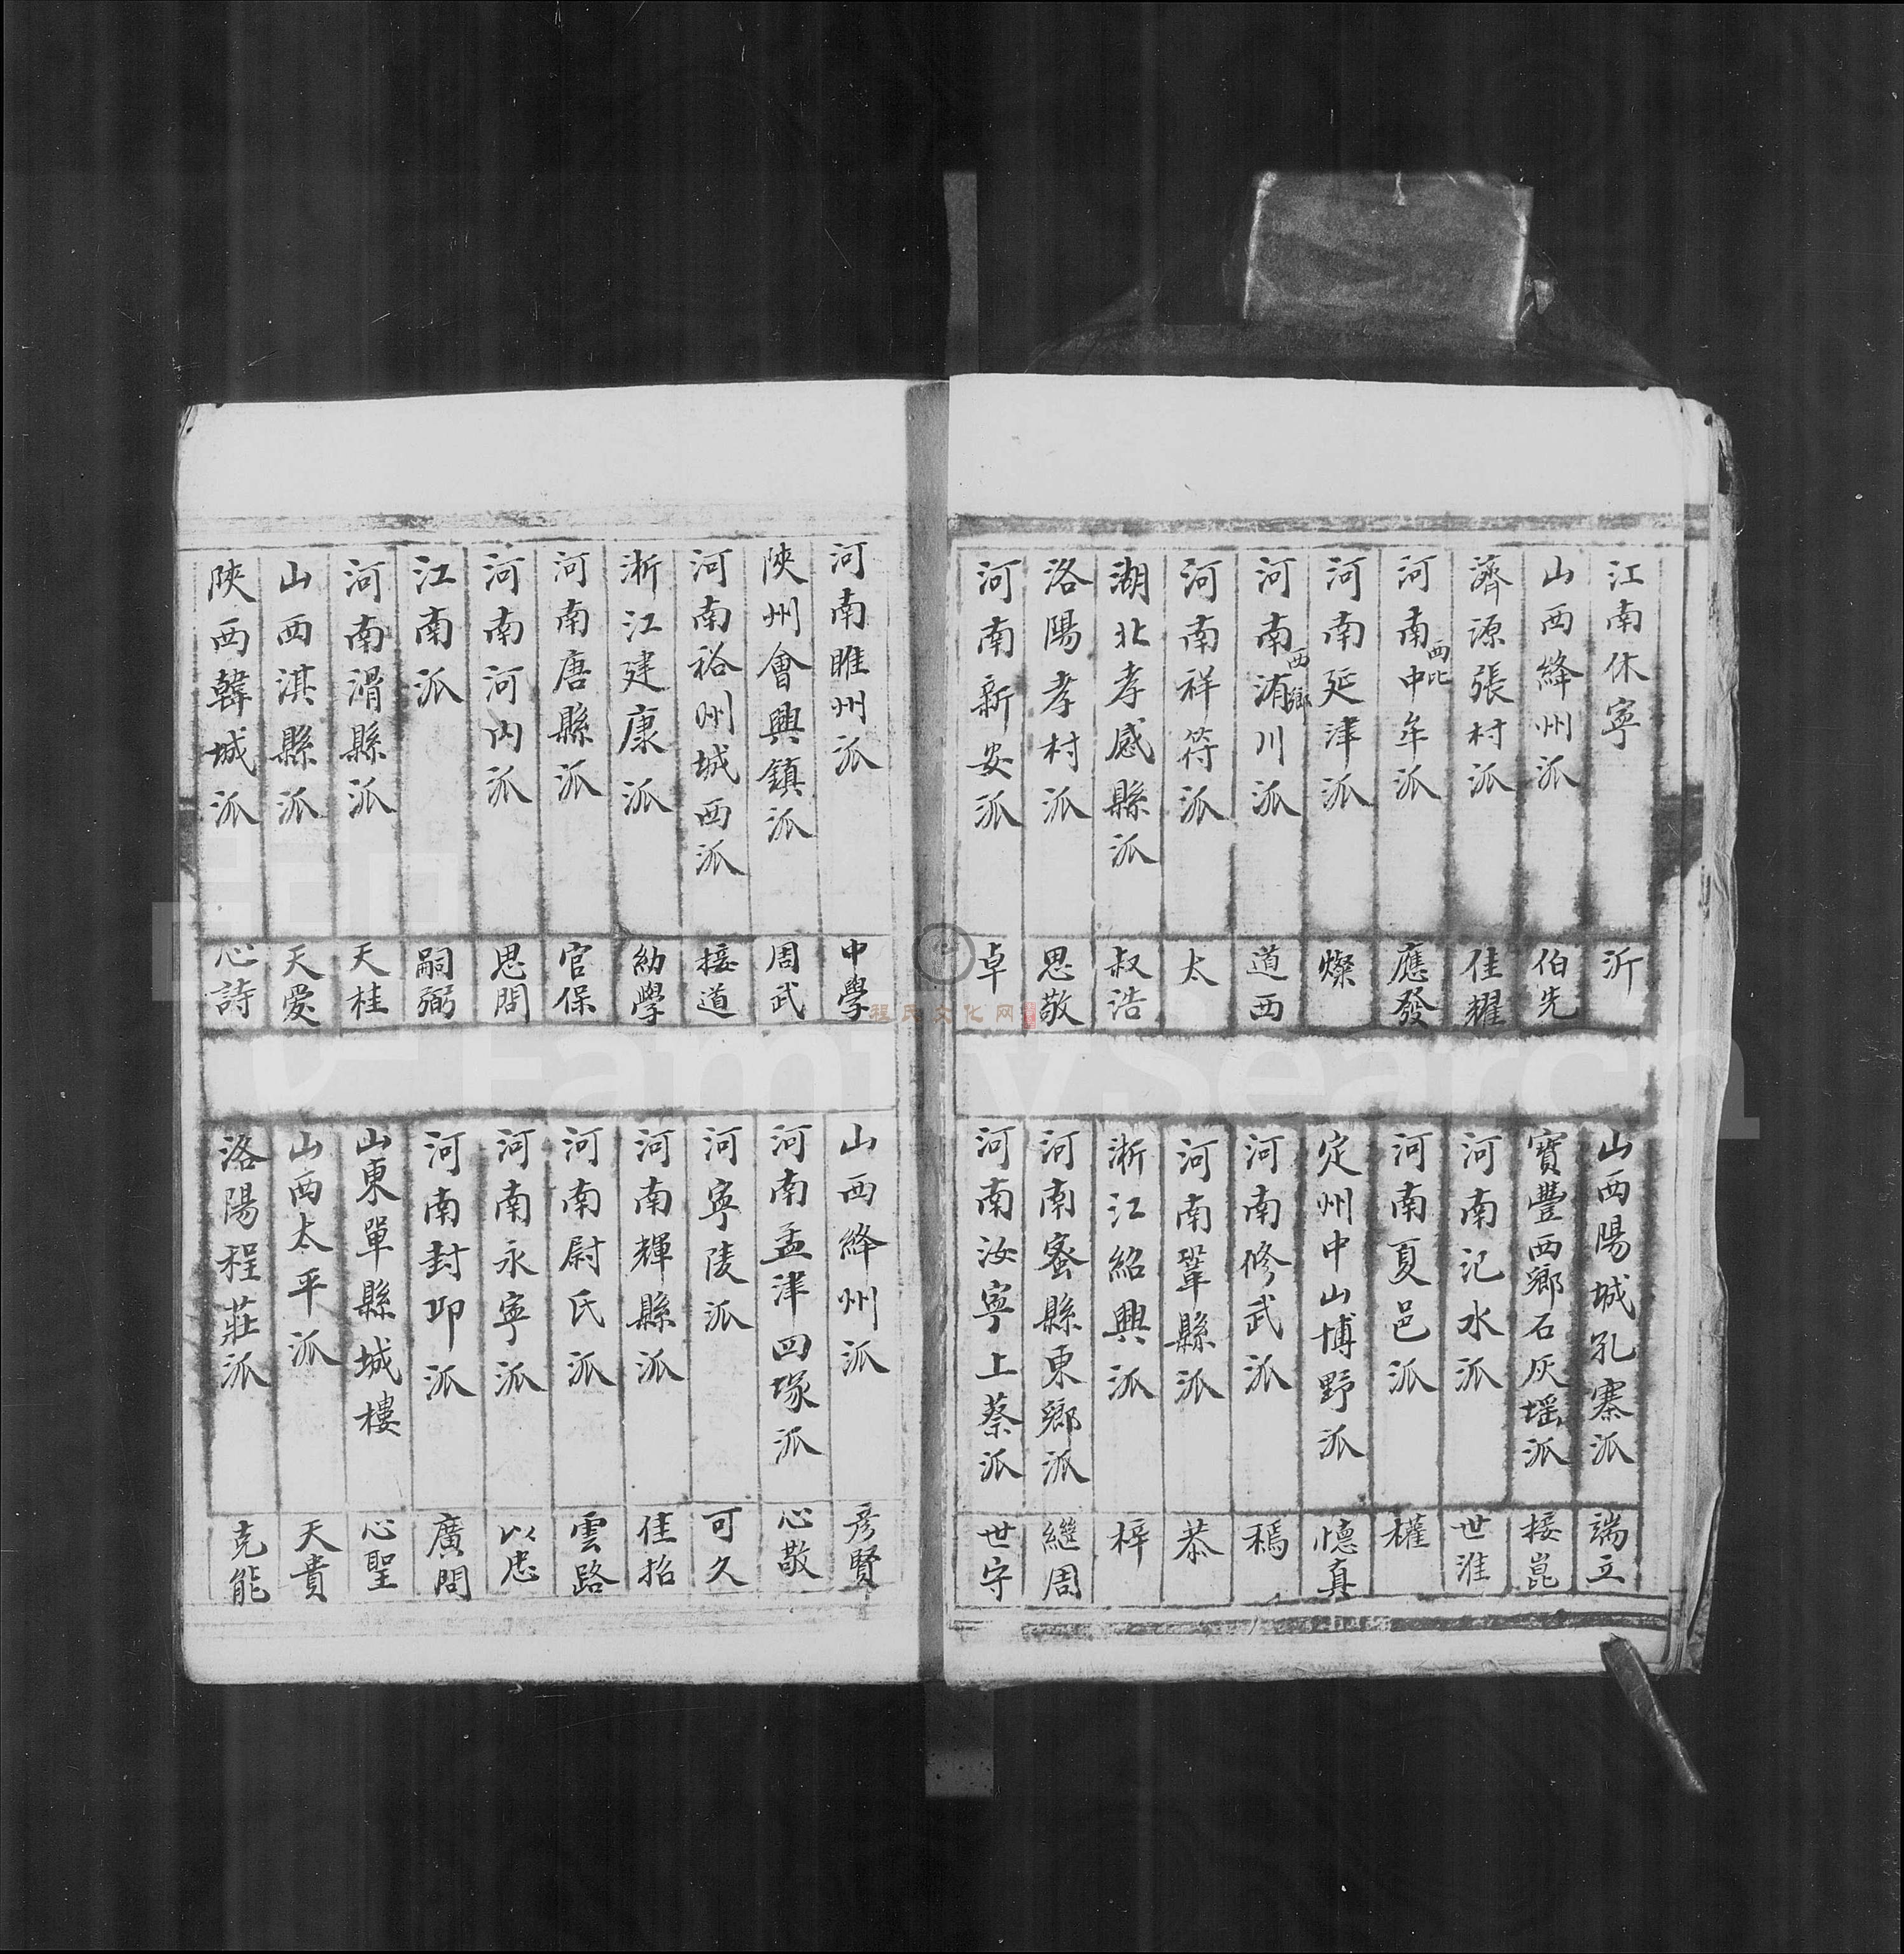 江南休寧 沂
山西絳州派 伯先
濟源張村派 佳耀
河南中牟派 西北 應發
河南延津派 燦
河南洧川派 西鄉 道西
河南祥符派 太
湖北孝感縣派 叔浩
洛陽孝村派 思敬
河南新安派 卓
山西陽城孔寨派 端立
寶豐西鄉石灰塪派 接崑
河南汜水派 世淮
河南夏邑派 權
定州中山博野派 憶真
河南修武派 槁
河南鞏縣派 恭
淅江紹興派 梓
河南蜜縣東鄉派 繼周
河南汝寧上蔡派 世守
河南睢州派 中學
陝州會興鎮派 周武
河南裕州城西派 接道
淅江建康派 幼學
河南唐縣派 官保
河南河內派 思問
江南派 嗣弼
河南滑縣派 天桂
山西淇縣派 天愛
陝西韓城派 心詩
山西絳州派 彥賢
河南孟津四塚派 心敬
河寧陵派 可久
河南輝縣派 佳招
河南尉氏派 雲路
河南永寧派 以忠
河南封邱派 廣問
山東單縣城樓 心聖
山西太平派 天貴
洛陽程莊派 克能
程氏文化网
FamilySearch